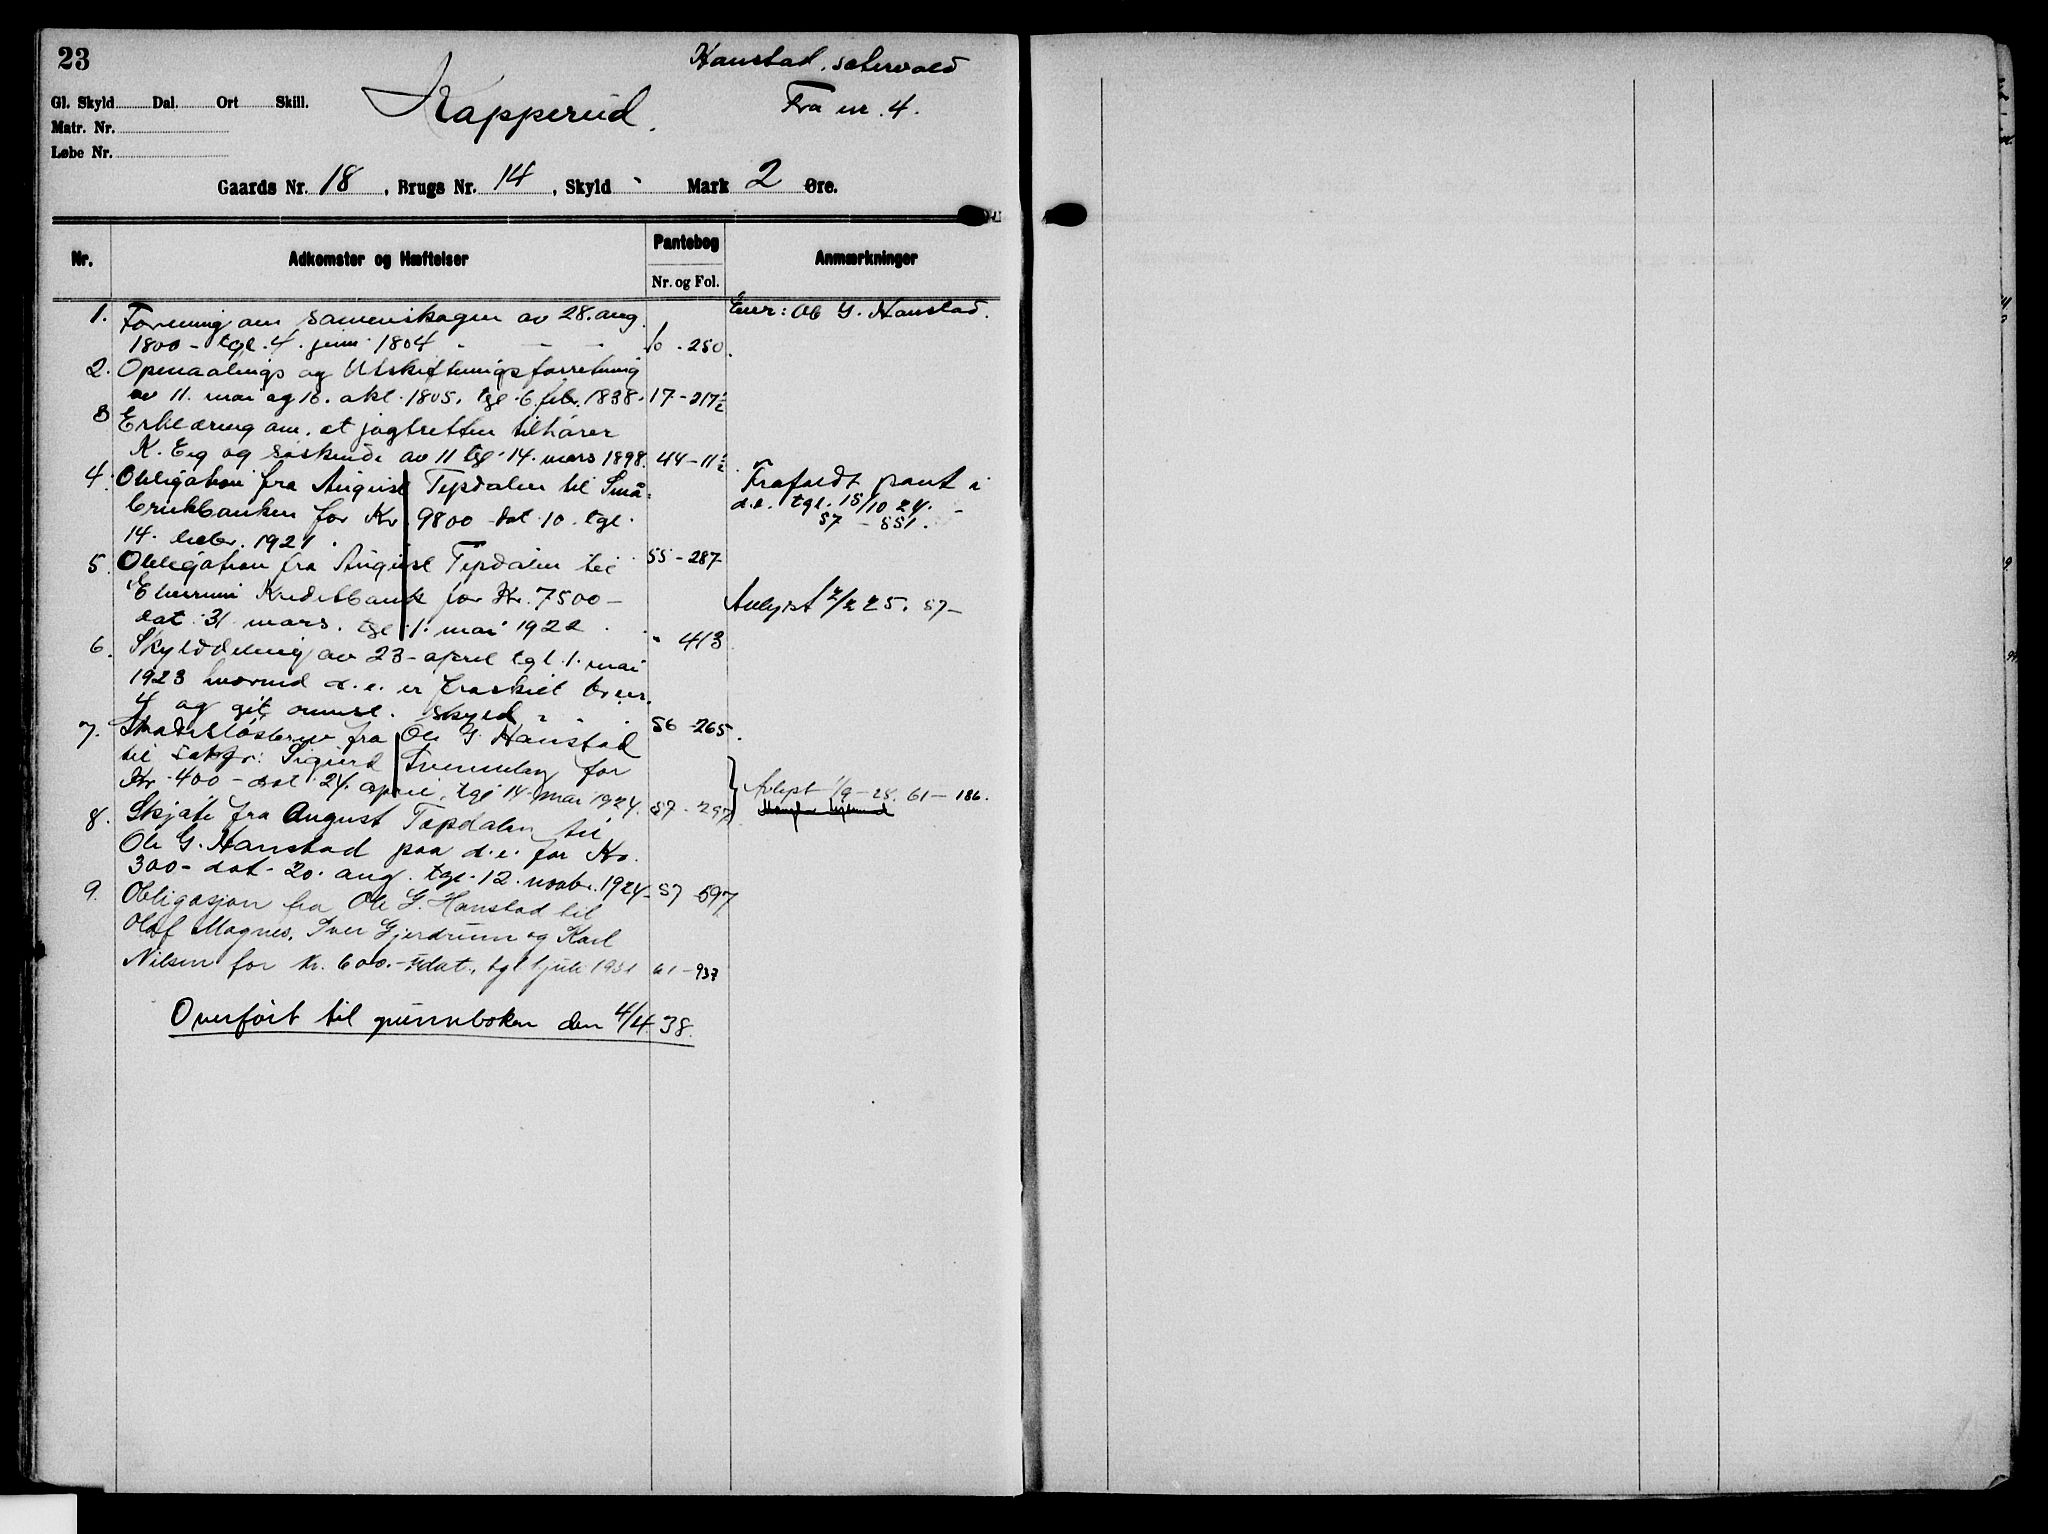 23
Hanstad, sætervold
Gl. Skyld Dal. Ort Skill.
Kapperud.
Fra nr. 4.
Matr. Nr.
Løbe Nr.
Gaards Nr. 18, Brugs Nr. 14, Skyld - Mark 2 Øre.
Nr. Adkomster og Hæftelser Pantebog Anmærkninger
Nr. og Fol.
1. Forening om sameieskogen av 28. aug. Eier: Ole G. Hanstad.
1800 - tgl. 4. juni 1804 - - - 6 - 250.
2. Opmaalings og Utskiftningsforretning
av 11. mai og 16. okt. 1805, tgl. 6. febr. 1838. 17 - 217½
3 Erklæring om, at jagtretten tilhører
K. Eeg og søskende av 11 tgl. 14. mars 1898. 44 - 11½
4. Obligation fra August Tepdalen til Små- Frafaldt pant i
brukbanken for Kr. 9800 - dat. 10. tgl. d.e. tgl. 15/10 24. -
14. decbr. 1921. 57 - 551.
5. Obligation fra August Tepdalen til 55 - 287
Elverum Kreditbank for Kr. 7500 - Avlyst 12/2 25. 57 -
dat. 31 mars. tgl. 1. mai 1922 . " 413
6. Skylddeling av 23 - april tgl. 1. mai
1923 hvorved d.e. er fraskilt br.nr.
4 og git omms. skyld - - 56 - 265.
7. Skadesløsbrev fra Ole G. Hanstad
til sakfr: Sigurd Svenneby for
Kr. 400 - dat. 24. april, tgl. 14. mai 1924. 57 - 297 Avlyst 1/9 - 28. 61 - 186.
8. Skjøte fra August Tøpdalen til
Ole G. Hanstad paa d.e. for Kr.
300 - dat. 20. aug. tgl. 12. novbr. 1924 - 57 - 697
9. Obligasjon fra Ole G. Hanstad til
Olaf Magnes, Iver Gjerdrum og Karl
Nilsen for kr. 600. - udat., tgl 1 juli 1931 61 - 937
Overført til grunnboken den 4/4 38.